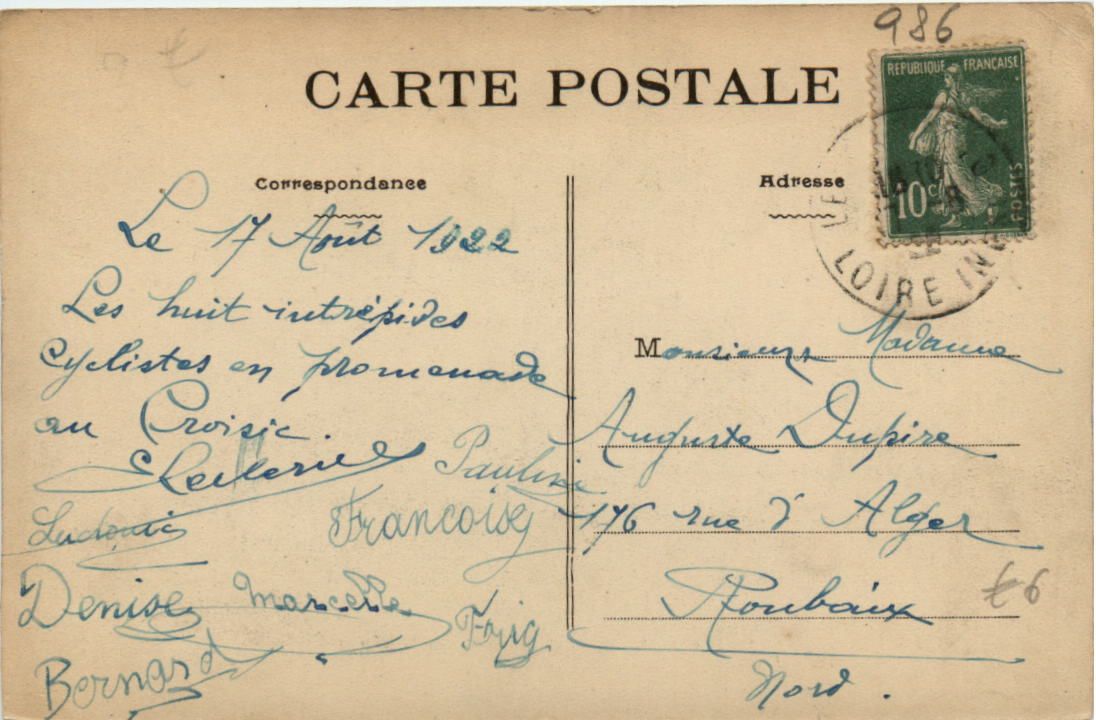 986
CARTE POSTALE
REPUBLIQUE FRANÇAISE
10c
POSTES
LOIRE INF
Correspondance
Le 17 Août 1922
Les huit intrépides
cyclistes en promenade
au Croisic.
Pauline
Françoise
Ludovic
Denise Marcelle
Bernard
Adresse
Monsieur Madame
Auguste Dupire
176 rue d'Alger
Roubaix
Nord.
€6